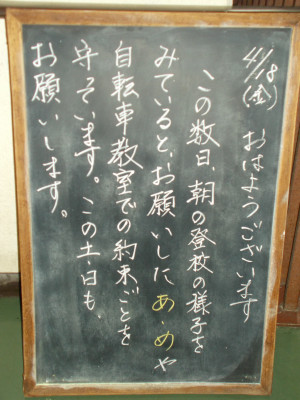 4/18(金) おはようございます
この数日、朝の登校の様子を
みていると、お願いしたあ・めや
自転車教室での約束ごとを
守っています。この土日も、
お願いします。